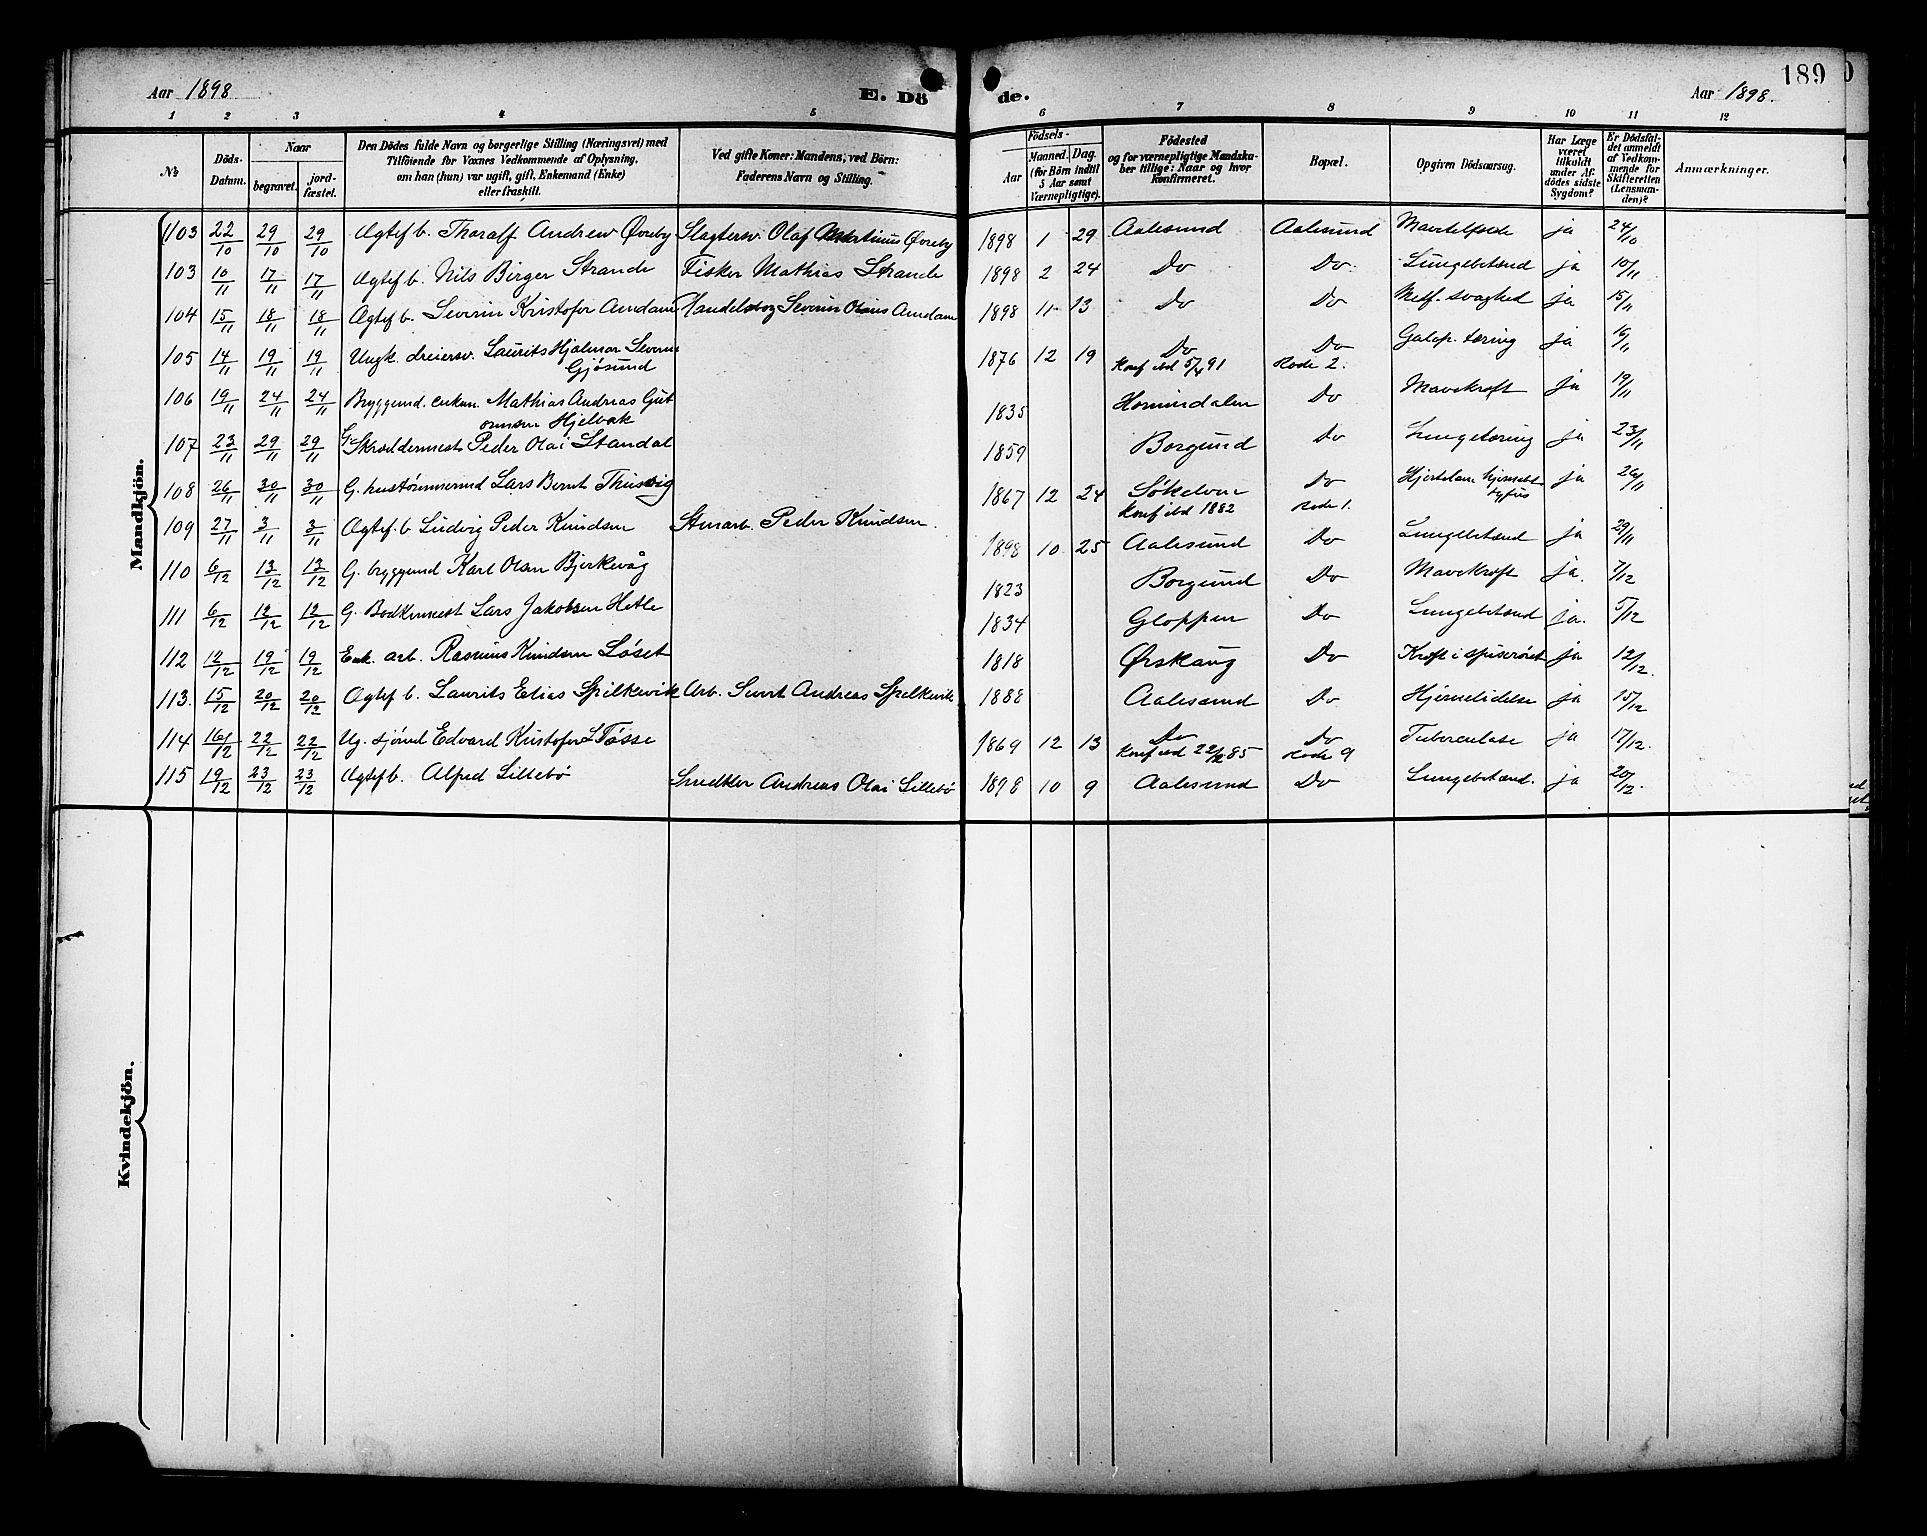 189
Aar 1898
E. Dö de.
Aar 1898.
1 2 3 4 5 6 7 8 9 10 11 12
№ Döds-Datum. Naar begravet. jord-fæstet. Den Dödes fulde Navn og borgerlige Stilling (Næringsvei) med Tilföiende for Voxnes Vedkommende af Oplysning, om han (hun) var ugift, gift, Enkemand (Enke) eller fraskilt. Ved gifte Koner: Mandens; ved Börn: Faderens Navn og Stilling. Födsels- Aar Maaned. Dag. (for Börn indtil 5 Aar samt Værnepligtige). Födested og for værnepligtige Mandskaber tillige: Naar og hvor Konfirmeret. Bopæl. Opgiven Dödsaarsag. Har Læge været tilkaldt under Afdödes sidste Sygdom? Er Dödsfaldet anmeldt af Vedkommende for Skifteretten (Lensmanden)? Anmærkninger.
Mandkjön.
103 22/10 29/10 29/10 Ægtef b. Tharalf Andrew Øvreby Slagtersv. Olaf Øvreby 1898 1 29 Aalesund Aalesund ja 24/10
103 10/11 17/11 17/11 Ægtef b. Nils Birger Strande Fisker Mathias Strande 1898 2 24 Do Do Lungebetænd ja 10/11
104 15/11 18/11 18/11 Ægtef b. Severin Kristofer Aamdam Severin Olaus Aamdam 1898 11 13 Do Do Medf. svaghed ja 15/11
105 14/11 19/11 19/11 Ungk. dreiersv. Laurits Hjalmar Severin 1876 12 19 Do Do Galop. tæring ja 16/11
Gjøsund Konf ibd 5/4 91 Rode 2.
106 19/11 24/11 24/11 Bryggemd. enkem. Mathias Andreas Gut 1835 Hornindalen Do Mavekræft ja 19/11
ormsen Hjelvak
107 23/11 29/11 29/11 G. Skræddermest Peder Olai Standal 1859 Borgund Do Lungetæring ja 23/11
108 26/11 30/11 30/11 G. hustømmermd Lars Bernt Thusvig 1867 12 24 Søkelven Do ja 26/11
Konf ibd 1882 Rode 1.
109 27/11 3/11 3/11 Ægtef. b Ludvig Peder Knudsen Stuarb. Peder Knudsen. 1898 10 25 Aalesund Do Lungebetænd ja 29/11
110 6/12 13/12 13/12 G. bryggemd Karl Olsen Bjerkevåg 1823 Borgund Do Mavekræft ja. 7/12
111 6/12 12/12 12/12 G. Bødkermest Lars Jakobsen Hetle 1834 Gloppen Do Lungebetænd ja. 5/12
112 12/12 19/12 19/12 Enk. arb. Rasmus Knudsen Løset 1818 Ørskaug Do Kræft i spiserøret ja 12/12.
113. 15/12 20/12 20/12 Ægtef b. Laurits Elias Spilkevik Arb. Sivert Andreas Spelkevik 1888 Aalesund Do Hjernelidelse ja 15/12
114 16/12 22/12 22/12 Ug. sjømd Edvard Kristofer L Tøsse 1869 12 13 Do Do Tuberculose ja 17/12.
Konf ibd 22/ 85 Rode 9
115 19/12 23/12 23/12 Ægtef b. Alfred Lillebø Snedker Andreas Olai Lillebø 1898 10 9 Aalesund Do Lungebetænd. ja 20/12.
Kvindekjön.